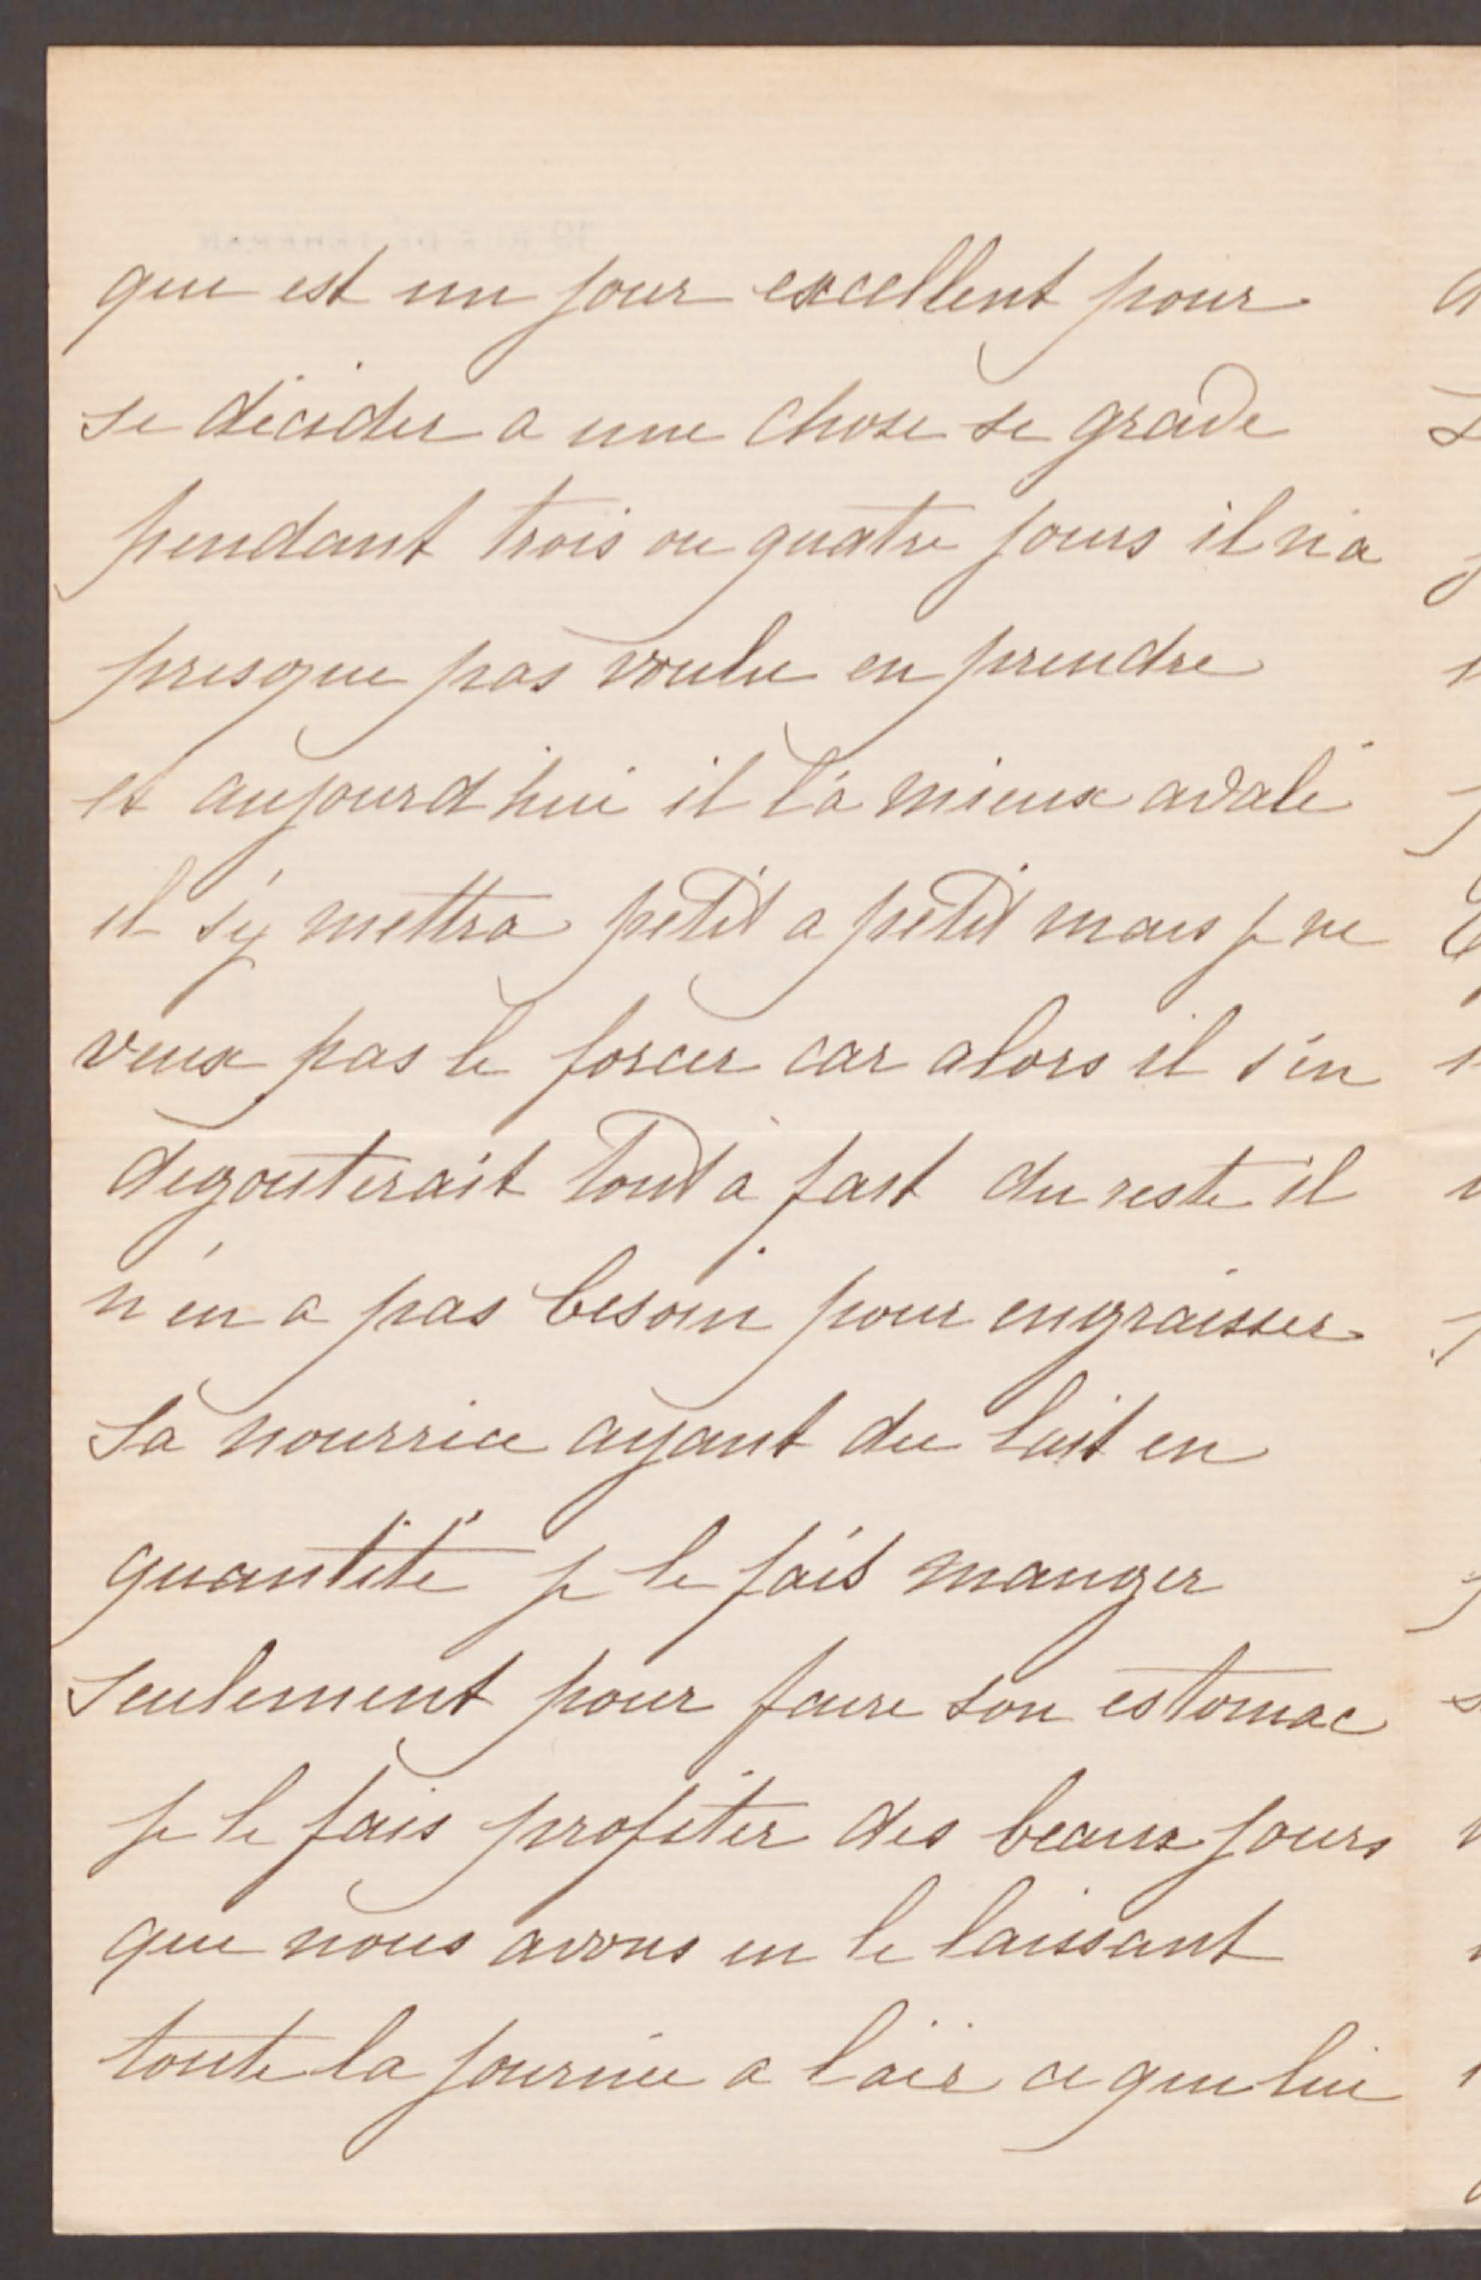 que est un jour excellent pour
se décider a une chose se grave
pendant trois ou quatre jours il n'a
presque pas voulu en prendre
et aujourd'hui il l'a mieux avalé
il s'y mettra petit a petit mais je ne
veux pas le forcer car alors il s'en
degouterait tout à fait du reste il
n'en a pas besoin pour engraisser
sa nourrice ayant du lait en
quantité je le fais manger
seulement pour faire son estomac
je le fais profiter des beaux jours
que nous avons en le laissant
toute la journée a l'air ce qui lui